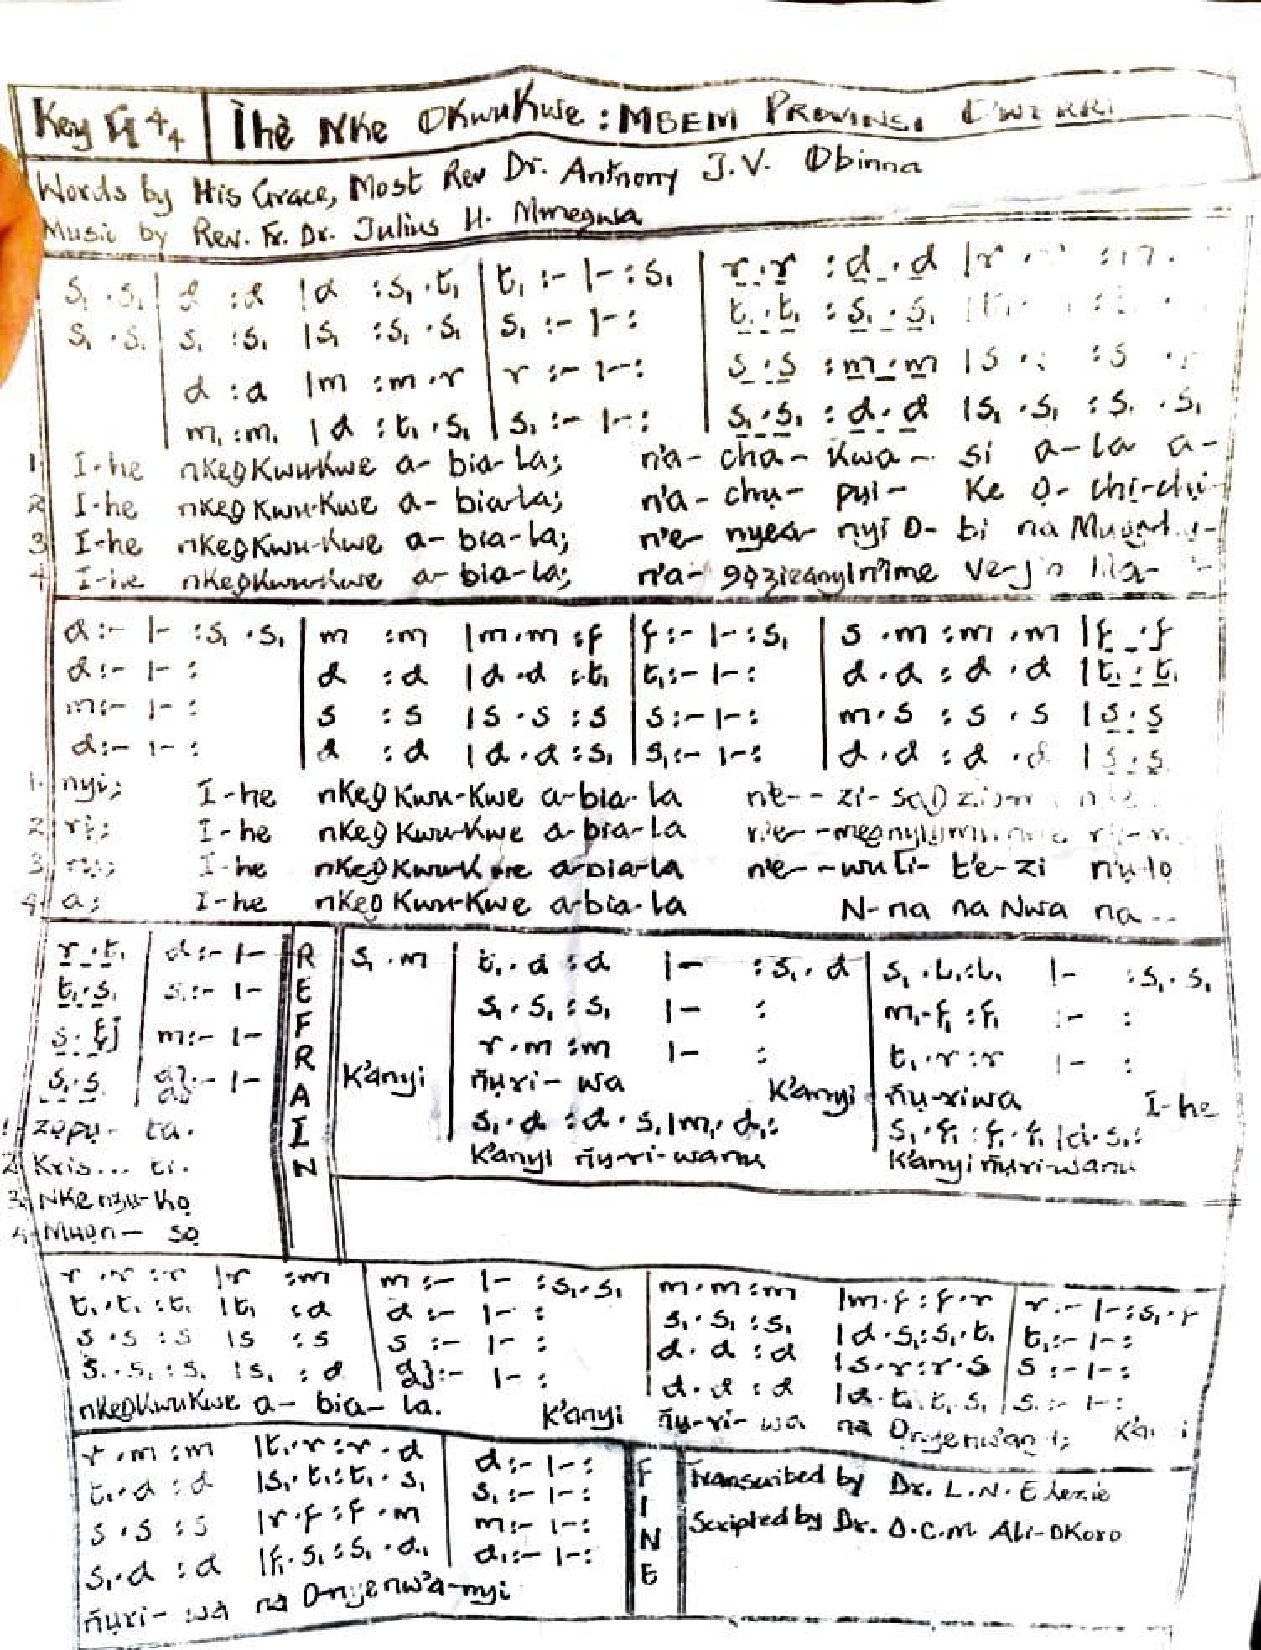 Key G 4/4 | Ìhè Nke Okwukwe : MBEM PROVINSI OWERRI
Words by His Grace, Most Rev Dr. Anthony J.V. Obinna
Music by Rev. Fr. Dr. Julius H. Mmegwa
s₁ .s₁ | d :d |d :s₁ .t₁ | t₁ :- |- :s₁ | r . r : d . d |r
s₁ .s₁ | s₁ :s₁ |s₁ :s₁ .s₁ | s₁ :- |- : | t₁ . t₁ : s₁ . s₁
d :d |m :m .r | r :- |- : | s . s : m . m |s . :s
m₁ :m₁ |d :t₁ .s₁ | s₁ :- |- : | s₁ . s₁ : d . d |s₁ .s₁ :s₁ .s₁
1. I-he nkeọkwu-kwe a-bia-la; n'a-cha-kwa- si a-la a-
2. I-he nkeọkwu-kwe a-bia-la; n'a-chụ-pụi- ke ọ-chi-chi-
3 I-he nkeọkwu-kwe a-bia-la; n'e-nyea-nyi O-bi na
4 I-he nkeọkwu-kwe a-bia-la; n'a-gọzieanyin'ime
d :- |- :s₁ .s₁ | m :m |m .m :f | f :- |- :s₁ | s .m :m .m |f . f
d :- |- : | d :d |d .d :t₁ | t₁ :- |- : | d .d :d .d |t₁ . t₁
m :- |- : | s :s |s .s :s | s :- |- : | m .s :s .s |s . s
d :- |- : | d :d |d .d :s₁ | s₁ :- |- : | d .d :d .d |s . s
1. nyi; I-he nkeọkwu-kwe a-bia-la ne-- zi-
2. ri; I-he nkeọkwu-kwe a-bia-la
3. I-he nkeọkwu-kwe a-bia-la n'e--wuli- te-zi n'ụ-lọ
4. a; I-he nkeọkwu-kwe a-bia-la N-na na Nwa na--
r . t₁ | d :- |- | REFRAIN | s₁ .m | t₁ .d :d |- :s₁ .d | s₁ .l₁ :l₁ |- :s₁ .s₁
t₁ . s₁ | s₁ :- |- | s₁ .s₁ :s₁ |- : | m₁ .f₁ :f₁ :- :
s . f | m :- |- | r .m :m |- : | t₁ .r :r |- :
s₁ . s₁ | d :- |- | K'anyi ñụri-wa K'anyi ñụ-riwa I-he
s₁ .d :d .s₁ |m₁ .d₁ : | s₁ .f₁ :f₁ .f₁ |d .s₁ :
K'anyi ñụ-ri-wanu K'anyi ñụri-wanu
1. zọpụ- ta.
2. Kris... ti.
3. Nke nzu-kọ
4. Mụọn- sọ
r .r :r |r :m | m :- |- :s₁ .s₁ | m .m :m |m .f :f .r | r :- |- :s₁ .f
t₁ .t₁ :t₁ |t₁ :d | d :- |- : | s₁ .s₁ :s₁ |d .s₁ :s₁ .t₁ | t₁ :- |- :
s .s :s |s :s | s :- |- : | d .d :d |s .r :r .s | s :- |- :
s₁ .s₁ :s₁ |s₁ :d | d :- |- : | d .d :d |d .t₁ :t₁ .s₁ | s₁ :- |- :
nkeọkwukwe a- bia- la. K'anyi ñụ-ri-wa na Ọnyenwanyi;
r .m :m |t₁ .r :r .d | d :- |- : | FINE | Transcribed by Dr. L.N. Elezie
t₁ .d :d |s₁ .t₁ :t₁ .s₁ | s₁ :- |- : | Scripted by Dr. O.C.M. Ali-Okoro
s .s :s |r .f :f .m | m :- |- :
s₁ .d :d |f₁ .s₁ :s₁ .d₁ | d₁ :- |- :
ñụri- wa na O-nyenw'a-nyi